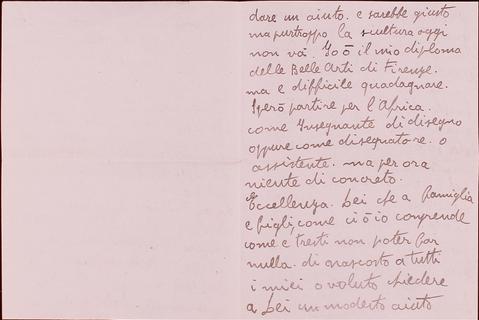 dare un aiuto. e sarebbe giusto
ma purtroppo la scultura oggi
non vá. Io ō il mio diploma
delle Belle Arti di Firenze.
ma e difficile guadagnare.
Sperō partire per l'Africa.
come Insegnante di disegno
oppure come disegnatore. o
assistente. ma per ora
niente di concreto.
Eccellenza. Lei che a famiglia
e figli, come ci ō io comprende
come e triste non poter far
nulla. di nascosto a tutti
i miei o voluto chiedere
a Lei un modesto aiuto